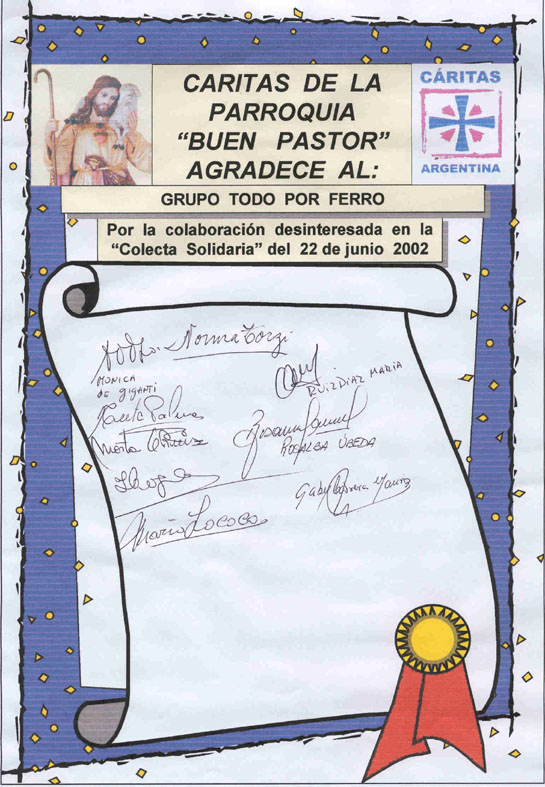 CARITAS DE LA
PARROQUIA
“BUEN PASTOR”
AGRADECE AL:
CÁRITAS
ARGENTINA
GRUPO TODO POR FERRO
Por la colaboración desinteresada en la
“Colecta Solidaria” del 22 de junio 2002
Norma Torzi
MONICA
de GIGANTI
RUIZ DIAZ MARIA
ROSALBA UBEDA
Mario Lococo